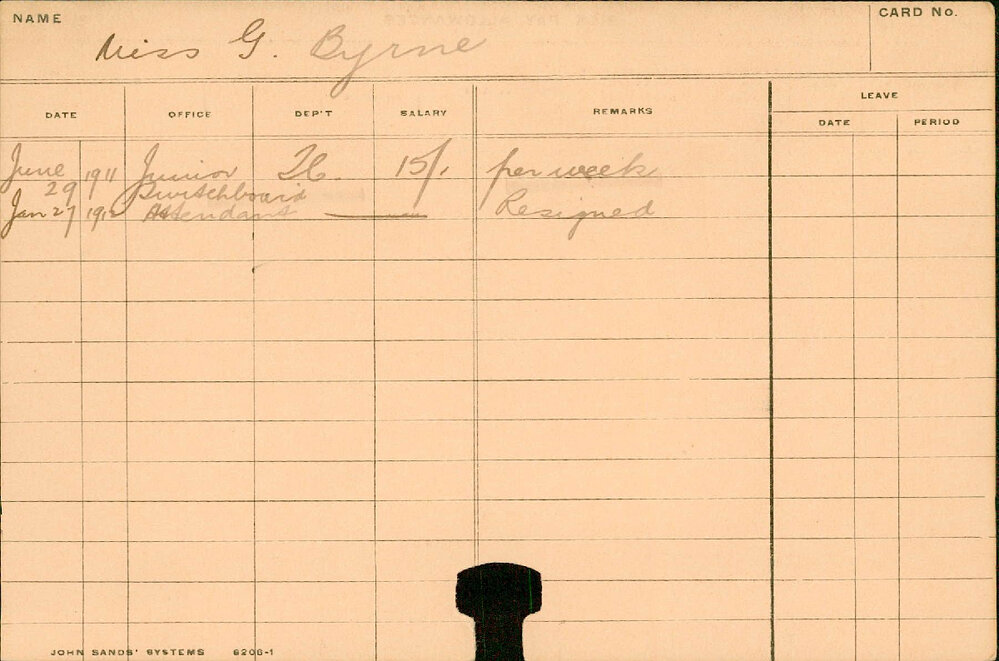 NAME Miss G. Byrne CARD No.
DATE OFFICE DEP'T SALARY REMARKS LEAVE
DATE PERIOD
June 1911 Junior 15/. per week
29 Switchboard
Jan 27 1912 Attendant Resigned
JOHN SANDS' SYSTEMS 6206-1